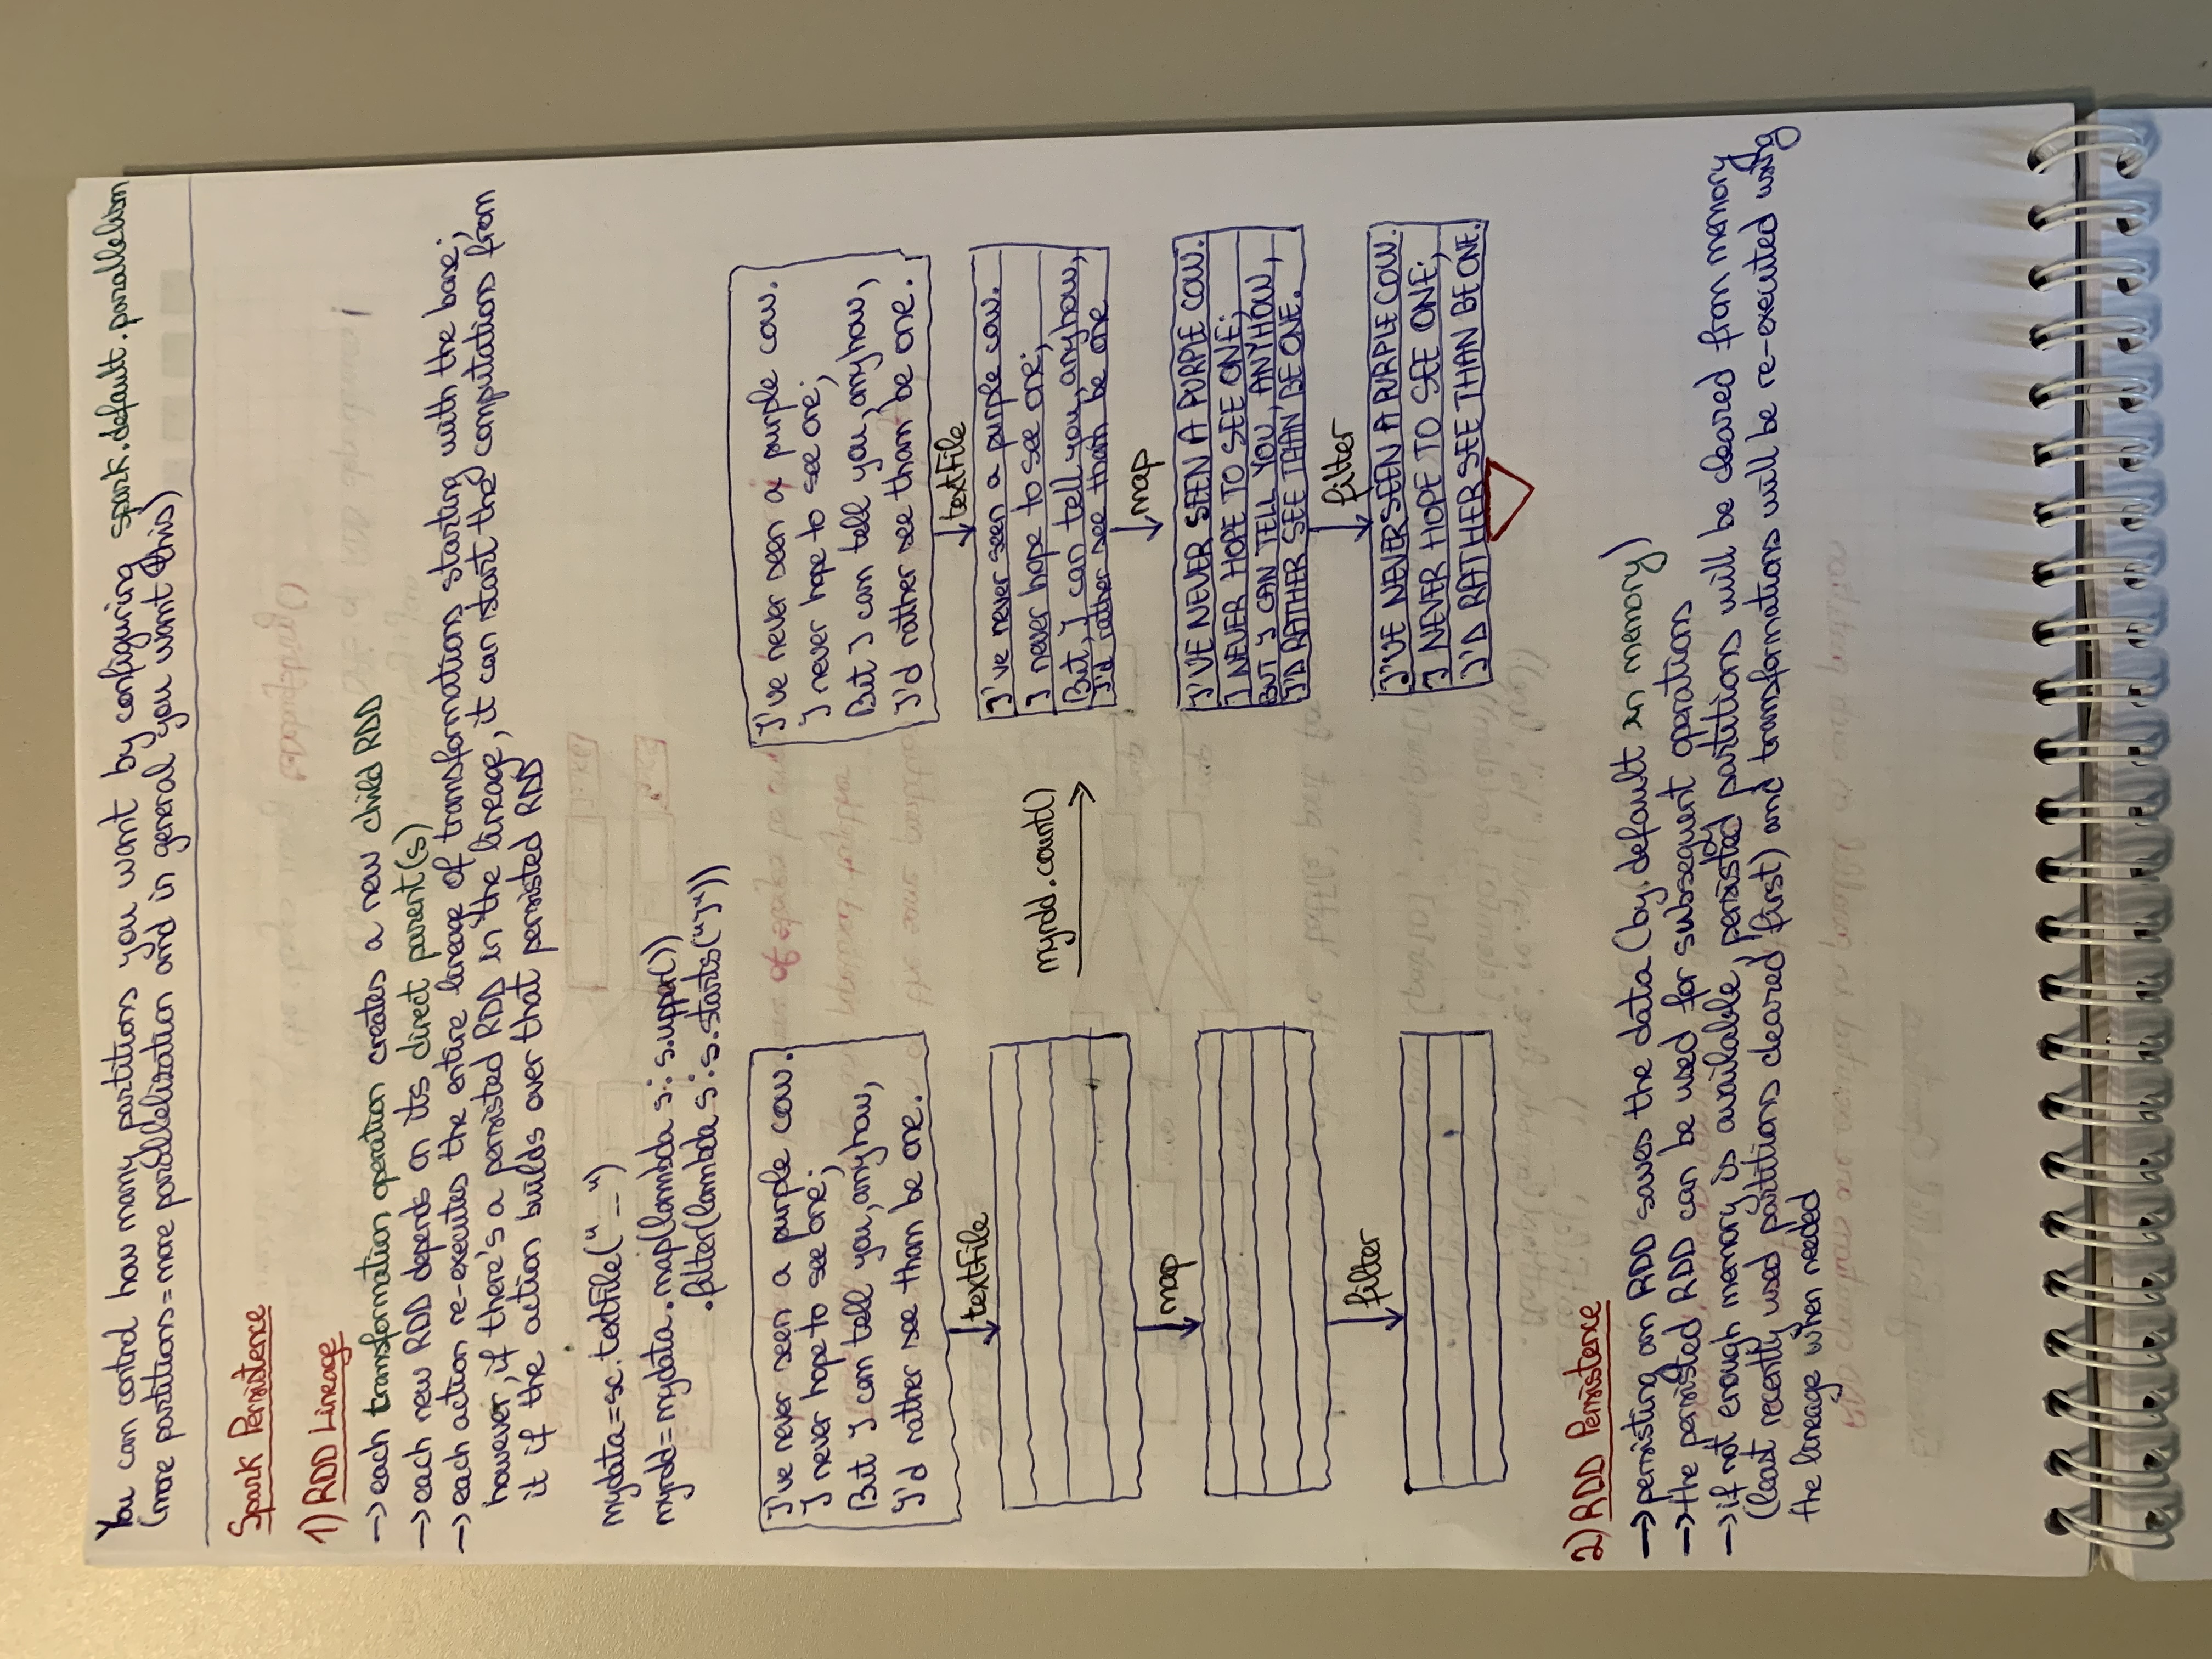 You can control how many partitions you want by configuring spark.default.parallelism
(more partitions = more parallelization and in general you want this)
Spark Persistence
1) RDD Lineage
→ each transformation operation creates a new child RDD
→ each new RDD depends on its direct parent(s)
→ each action re-executes the entire lineage of transformations starting with the base;
however, if there's a persisted RDD in the lineage, it can start the computations from
it if the action builds over that persisted RDD
mydata=sc.textFile("__")
myrdd=mydata.map(lambda s: s.upper())
.filter(lambda s: s.starts("I"))
I've never seen a purple cow.
I never hope to see one;
But I can tell you, anyhow,
I'd rather see than be one.
textFile
map
filter
myrdd.count()
I've never seen a purple cow.
I never hope to see one;
But I can tell you, anyhow,
I'd rather see than be one.
textFile
I've never seen a purple cow.
I never hope to see one;
But, I can tell you, anyhow,
I'd rather see than be one
map
I'VE NEVER SEEN A PURPLE COW.
I NEVER HOPE TO SEE ONE;
BUT I CAN TELL YOU, ANYHOW,
I'D RATHER SEE THAN BE ONE.
filter
I'VE NEVER SEEN A PURPLE COW.
I NEVER HOPE TO SEE ONE;
I'D RATHER SEE THAN BE ONE.
2) RDD Persistence
→ persisting an RDD saves the data (by default in memory)
→ the persisted RDD can be used for subsequent operations
→ if not enough memory is available, persisted partitions will be cleared from memory
(least recently used partitions cleared first) and transformations will be re-executed using
the lineage when needed